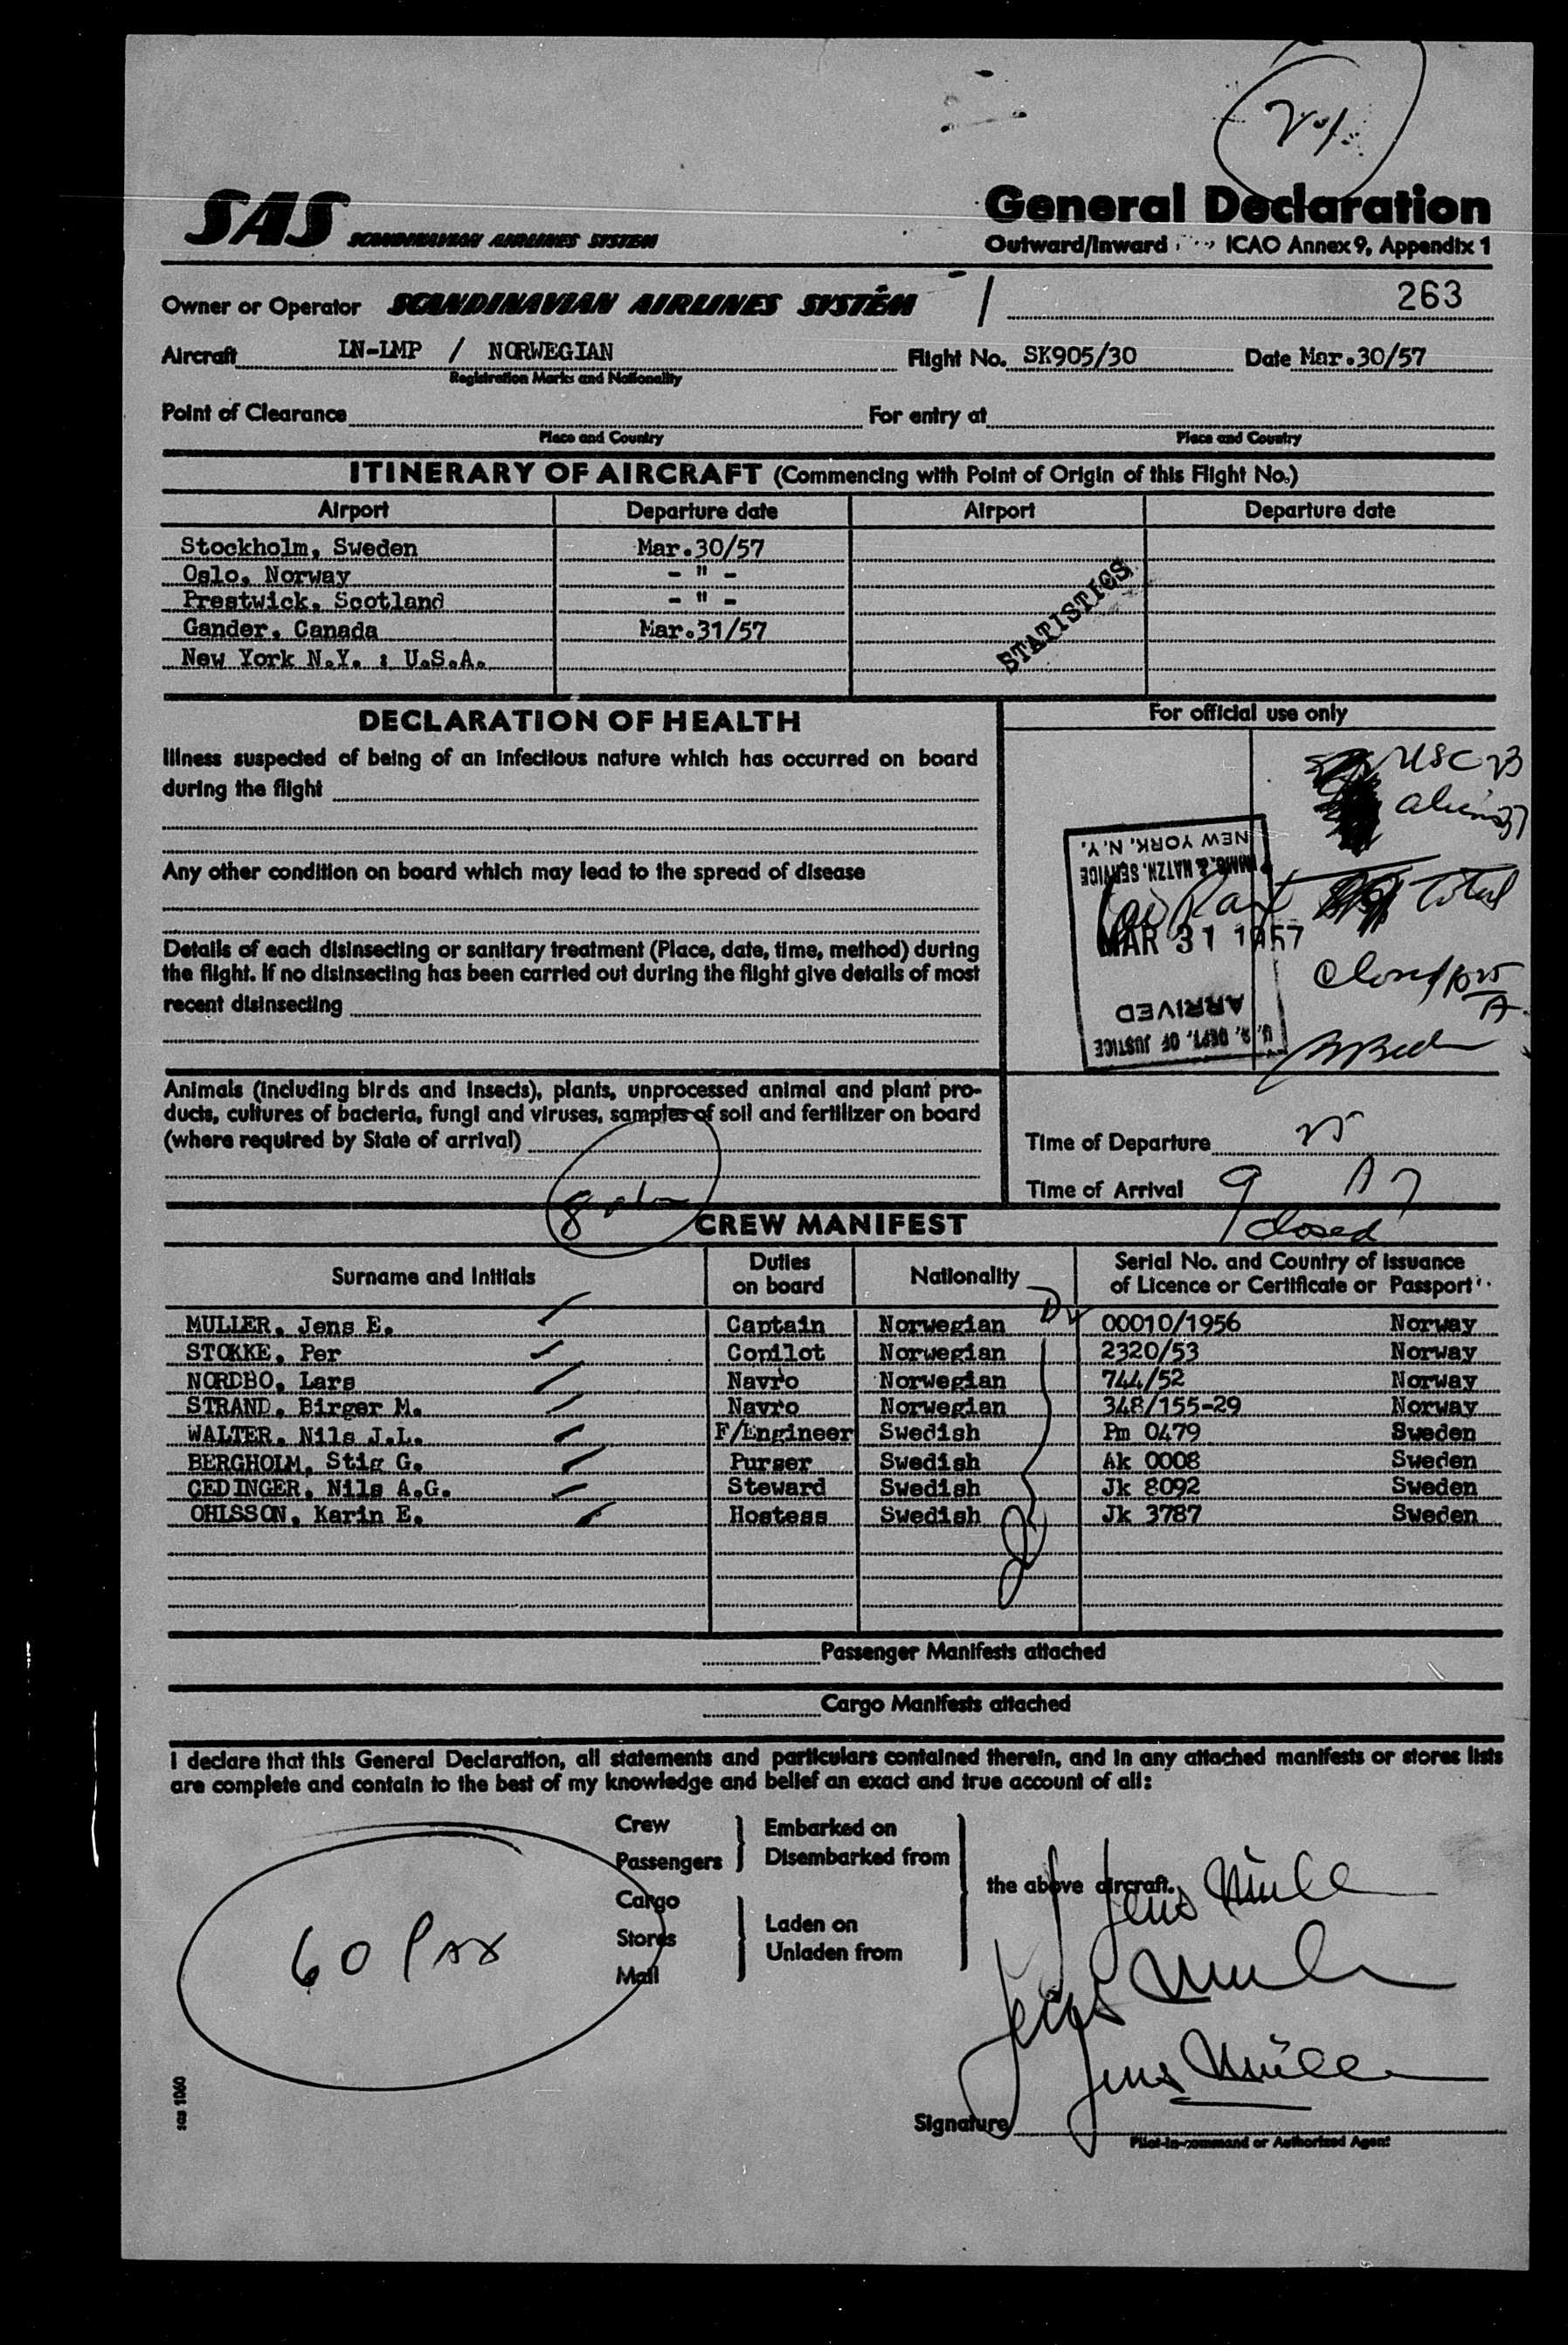 SAS SCANDINAVIAN AIRLINES SYSTEM
General Declaration
Outward/Inward ICAO Annex 9, Appendix 1
Owner or Operator SCANDINAVIAN AIRLINES SYSTEM / 263
Aircraft LN-LMP / NORWEGIAN Flight No. SK905/30 Date Mar.30/57
Registration Marks and Nationality
Point of Clearance For entry at
Place and Country Place and Country
ITINERARY OF AIRCRAFT (Commencing with Point of Origin of this Flight No.)
Airport Departure date Airport Departure date
Stockholm, Sweden Mar.30/57
Oslo, Norway - " -
Prestwick, Scotland - " -
Gander, Canada Mar.31/57
New York N.Y. : U.S.A.
STATISTICS
DECLARATION OF HEALTH
Illness suspected of being of an infectious nature which has occurred on board
during the flight
Any other condition on board which may lead to the spread of disease
Details of each disinsecting or sanitary treatment (Place, date, time, method) during
the flight. If no disinsecting has been carried out during the flight give details of most
recent disinsecting
Animals (including birds and insects), plants, unprocessed animal and plant pro-
ducts, cultures of bacteria, fungi and viruses, samples of soil and fertilizer on board
(where required by State of arrival)
For official use only
USC 23
alien 37
Total
Closed
NEW YORK, N.Y.
IMMG. & NATZN. SERVICE
MAR 31 1957
ARRIVED
U. S. DEPT. OF JUSTICE
Time of Departure
Time of Arrival 9
closed
8
CREW MANIFEST
Surname and Initials Duties on board Nationality Serial No. and Country of Issuance of Licence or Certificate or Passport
MULLER, Jens E. Captain Norwegian 00010/1956 Norway
STOKKE, Per Copilot Norwegian 2320/53 Norway
NORDBO, Lars Navro Norwegian 744/52 Norway
STRAND, Birger M. Navro Norwegian 348/155-29 Norway
WALTER, Nils J.L. F/Engineer Swedish Pm 0479 Sweden
BERGHOLM, Stig G. Purser Swedish Ak 0008 Sweden
CEDINGER, Nils A.G. Steward Swedish Jk 8092 Sweden
OHLSSON, Karin E. Hostess Swedish Jk 3787 Sweden
Passenger Manifests attached
Cargo Manifests attached
I declare that this General Declaration, all statements and particulars contained therein, and in any attached manifests or stores lists
are complete and contain to the best of my knowledge and belief an exact and true account of all:
Crew
Passengers
Embarked on
Disembarked from
Cargo
Stores
Mail
Laden on
Unladen from
the above aircraft.
60 Pax
Jens Müller
Jens Müller
Jens Müller
Signature
Pilot-in-command or Authorized Agent
sas 1060